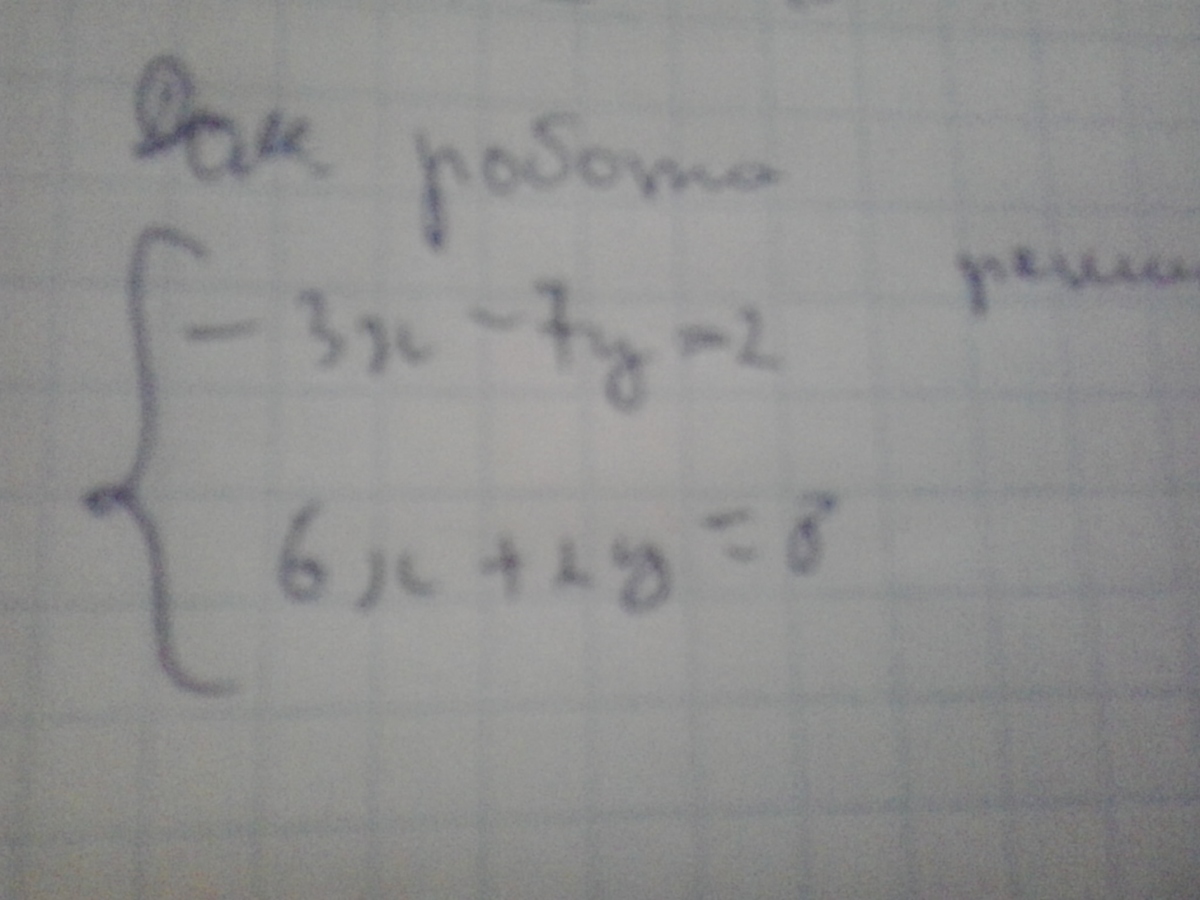 Как работа
реши
- 3x - 7y = 2
6x + 2y = 8